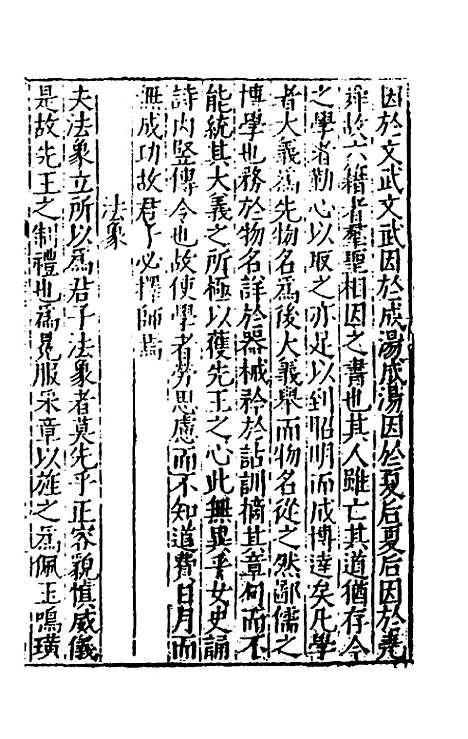 因於文武文武因於成湯成湯因於夏后夏后因於堯
舜故六籍者羣聖相因之書也其人雖亡其道猶存今
之學者勤心以取之亦足以到昭明而成博達矣凡學
者大義為先物名為後大義舉而物名從之然鄙儒之
博學也務於物名詳於器械矜於詁訓摘其章句而不
能統其大義之所極以獲先王之心此無異乎女史誦
詩內豎傳令也故使學者勞思慮而不知道費日月而
無成功故君子必擇師焉
法象
夫法象立所以爲君子法象者莫先乎正容貌慎威儀
是故先王之制禮也爲冕服采章以旌之爲佩玉鳴璜